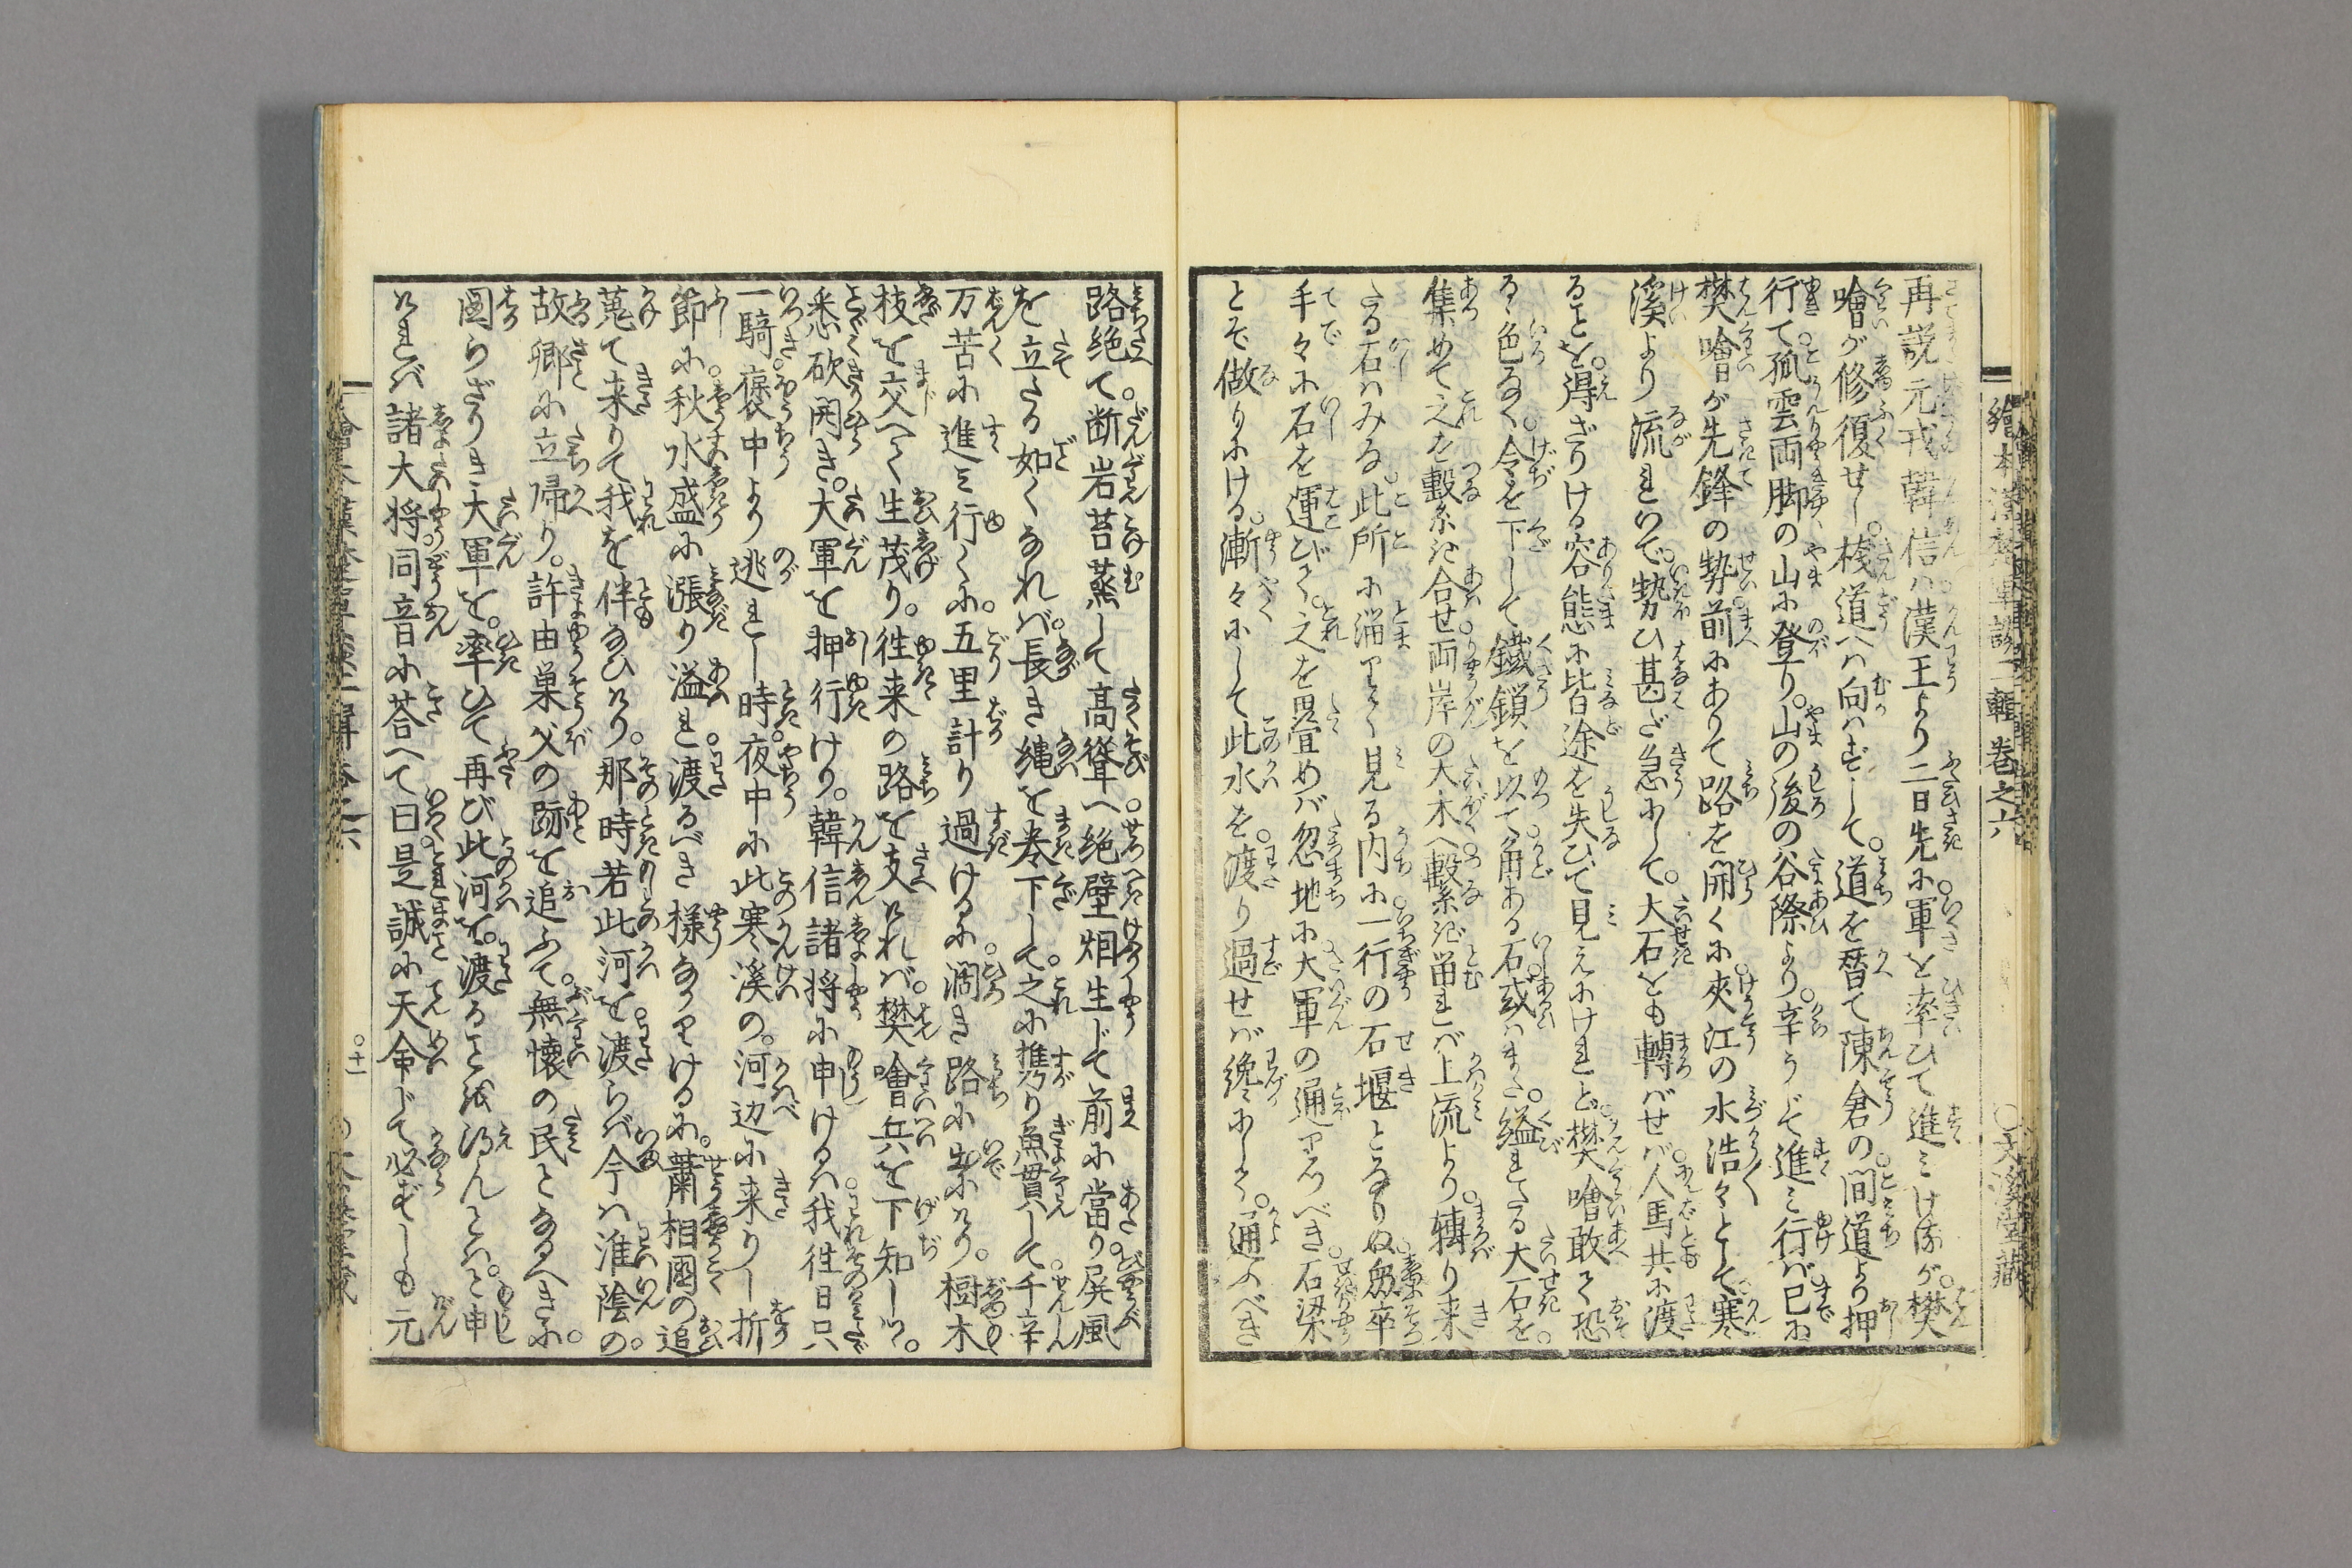 再説元戎韓信ハ漢王より二日先に軍を率ひて進ミけるが樊
噲が修復せし。桟道へハ向ハずして。道を替て陳倉の間道より押
行て。孤雲両脚の山に登り。山の後の谷際より。辛うじて進ミ行バ已に
樊噲が先鋒の勢前にありて路を開くに夾江の水浩々として寒
溪より流れいで。勢ひ甚ざ急にして。大石をも轉バせバ人馬共に渡
ることを。得ざりける容態に皆途を失ひて見えにけれど樊噲敢て恐
るゝ色なく。令を下して鐵鎖を以て角ある石或ハまた。縊れたる大石を。
集めて之を繋ぎ合せ両岸の大木へ繋ぎ留れバ上流より。轉り来
たる石ハみな此所に溜りて見る内に一行の石堰となりぬ。多卒
手々に石を運びて。之を畳めバ忽地に大軍の通りつべき石梁
とぞ做りにける。漸々にして此水を。渡り過せバ纔にして。通ふべき
路絶て。断岩苔蒸して高聳へ絶壁烟生じて前に當り屏風
を立たる如くなれバ。長き縄を巻下して。之に携り魚貫して千辛
万苦に進ミ行くに。五里計り過けるに。濶き路に出にけり。樹木
枝を交へて生茂り。徃来の路を支へけれバ。樊噲兵を下知しつ。
悉砍開き。大軍を押行けり。韓信諸将に申けるハ我徃日只
一騎。褒中より逃れし時。夜中に此寒溪の。河辺に来りし折
節に。秋水盛に漲り溢れ。渡るべき様なかりけるに。蕭相國の追
蒐て来りて我を伴なひけり。那時若此河を渡らバ今ハ淮陰の。
故郷に立帰り。許由巣父の跡を追ふて。無懐の民となるべきに。
図らざりき大軍を。率ひて再び此河を。渡ることを得んとハ。と申
けれバ諸大将。同音に荅へて曰是誠に天命じて必ずしも元
繪本漢楚軍談二輯 巻之六
○文溪堂藏
○十一